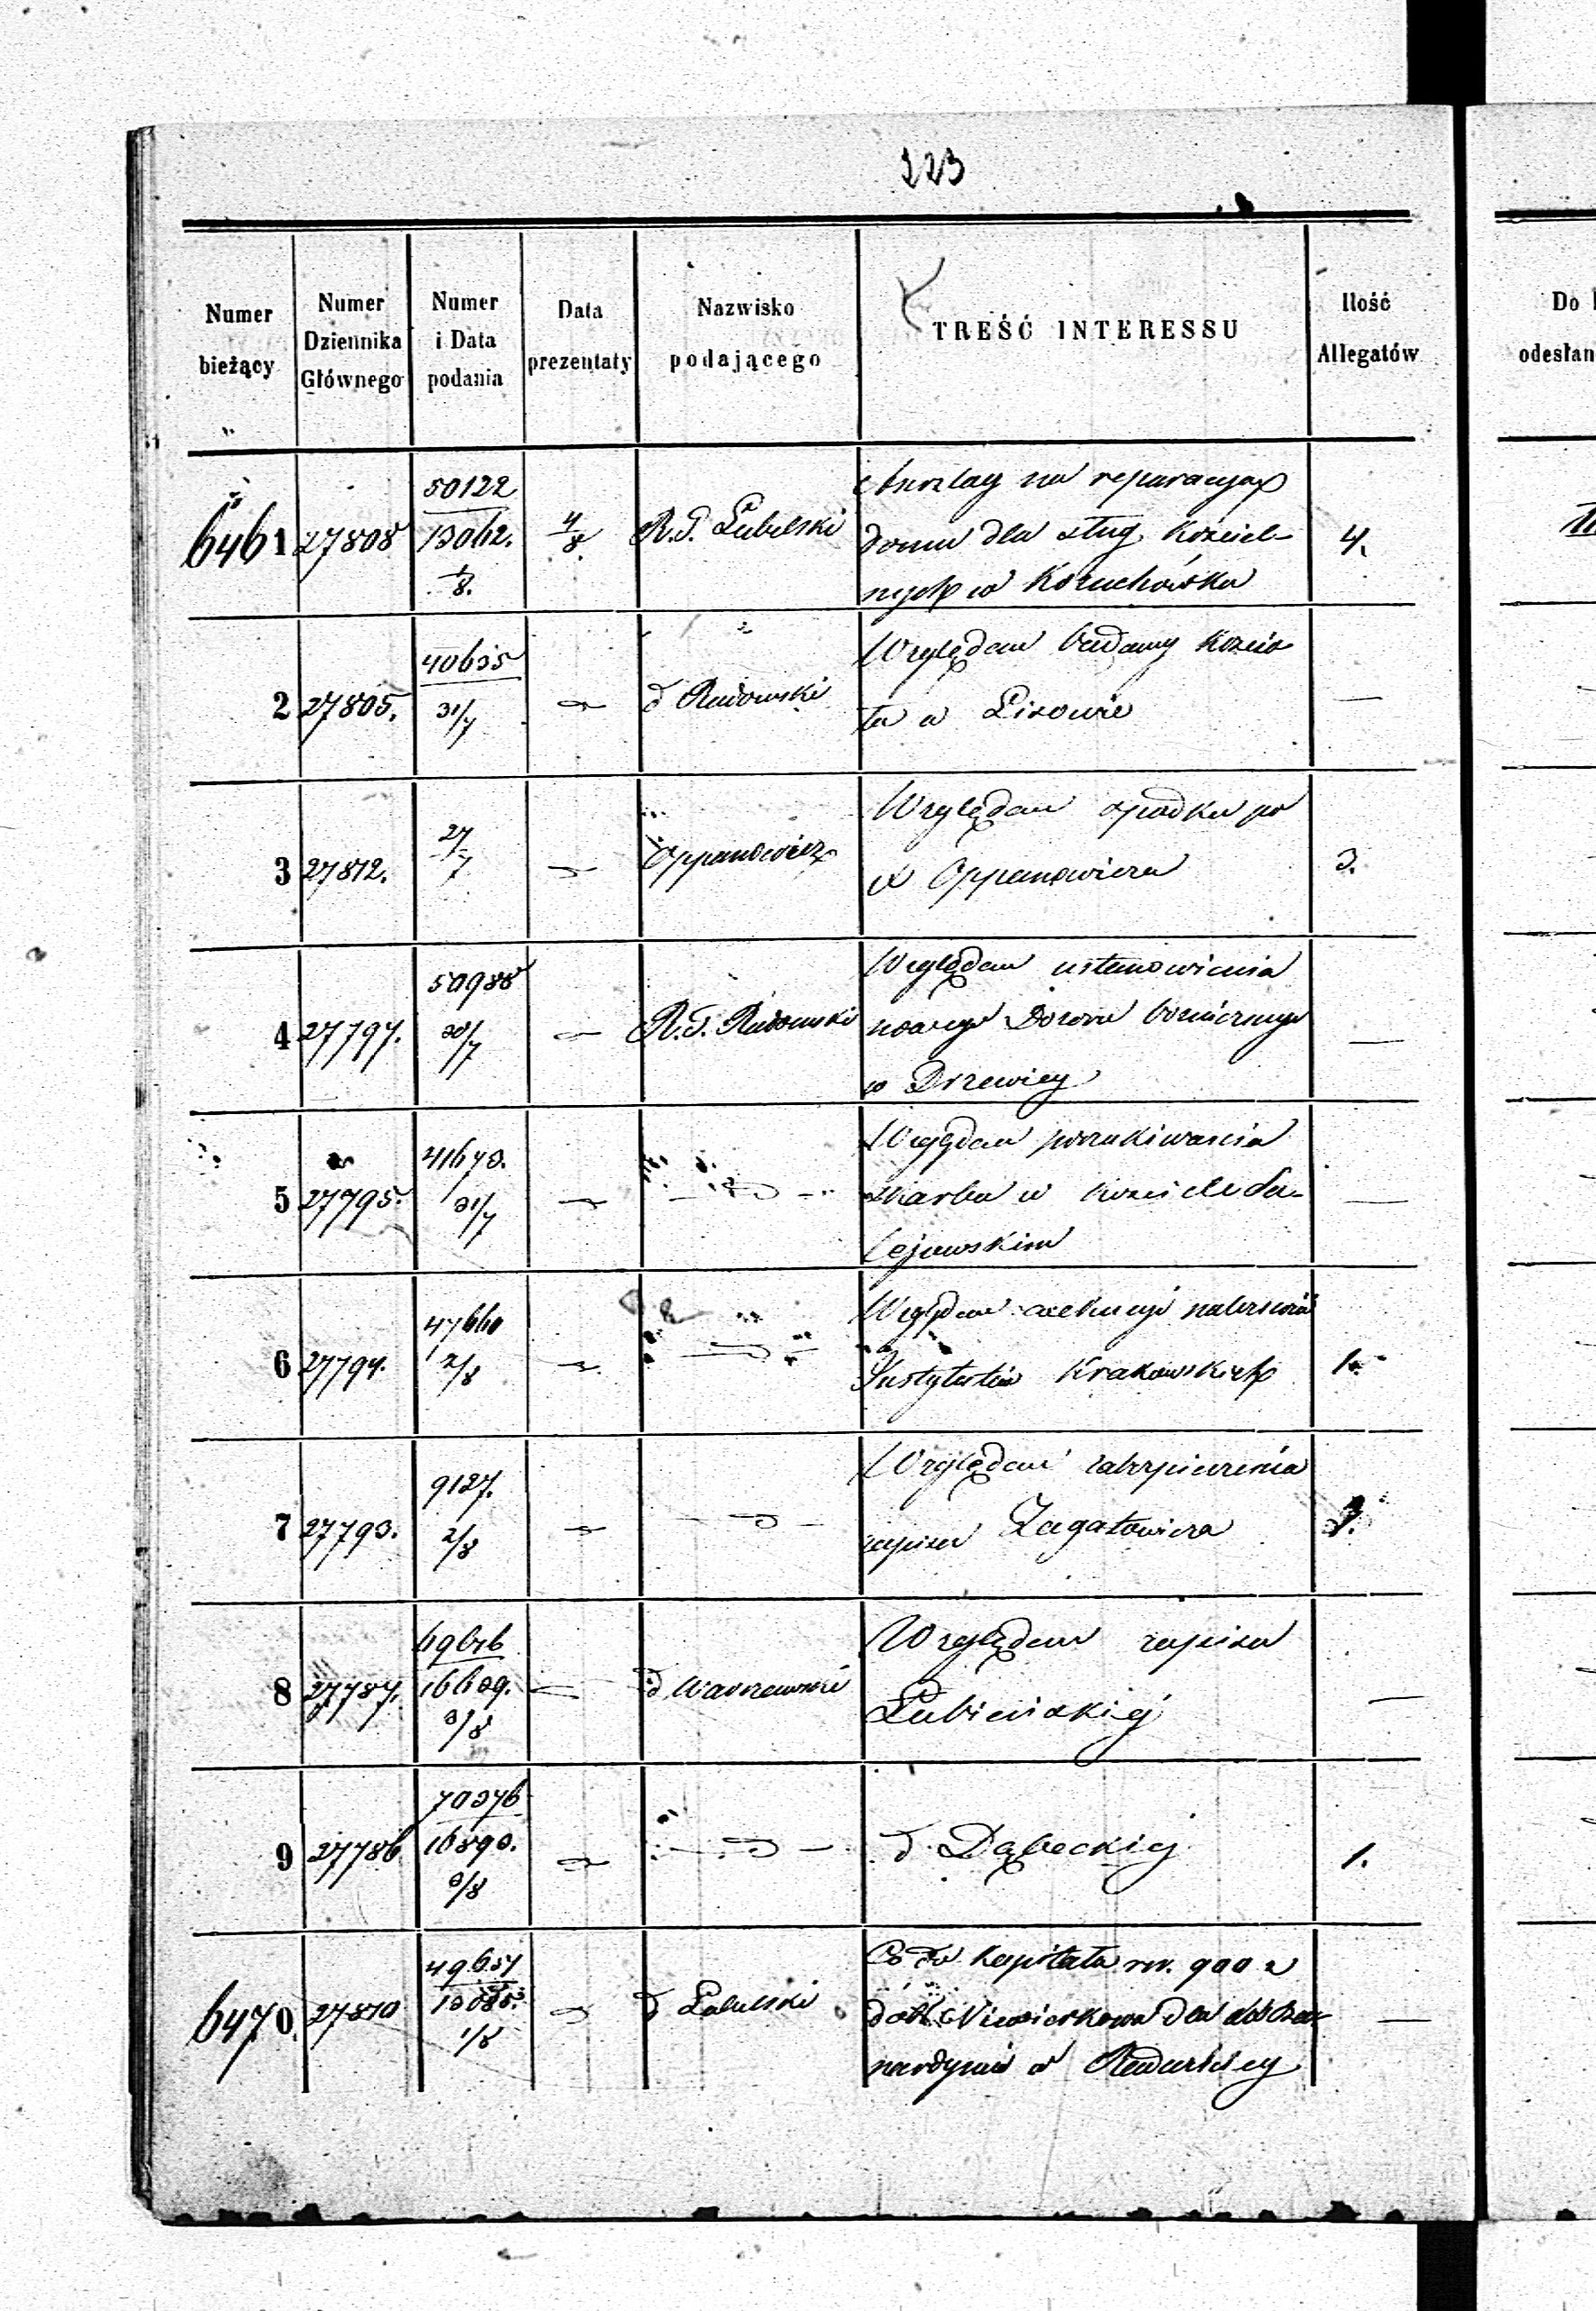 223
Numer bieżący | Numer Dziennika Głównego | Numer i Data podania | Data prezentaty | Nazwisko podającego | TREŚĆ INTERESSU | Ilość Allegatów
Do
odesłan
6461 | 27808 | 50122 / 13062. 1/8. | 4/8. | R. G. Lubelski | Anszlag na reparacyą
domu dla sług kościel-
nych w Kozuchówku | 4.
2 | 27805. | 40635 31/7 | | d Radomski | Względem budowy kościo
ła w Lisowie | —
3 | 27812. | 27/7 | | Oppanowicz | Względem spadku po
X Oppanowiczu | 3.
4 | 27797. | 50988 30/7 | | R. G. Radomski | Względem ustanowienia
nowego Dozoru bóżniczego
w Drzewicy | —
5 | 27795. | 41673. 31/7 | | — d — | Względem poszukiwania
skarbu w kościele Su-
lejowskim | —
6 | 27794. | 47660 2/8 | | — d — | Względem exekucyi należności
Instytutów Krakowskich | 1.
7 | 27793. | 9127. 2/8 | | — d — | Względem zabezpieczenia
zapisu Zagałowicza
8 | 27787. | 16609. 3/8 | — | d Warszawski | Względem zapisu
Lubieńskiej | —
9 | 27786 | 70376 / 16893. 3/8 | | — d — | d Dąbeckiej | 1.
6470. | 27810 | 49657 1/8 | | d Lubelski | Co do kapitału rs. 900 z
dóbr dla
w | —